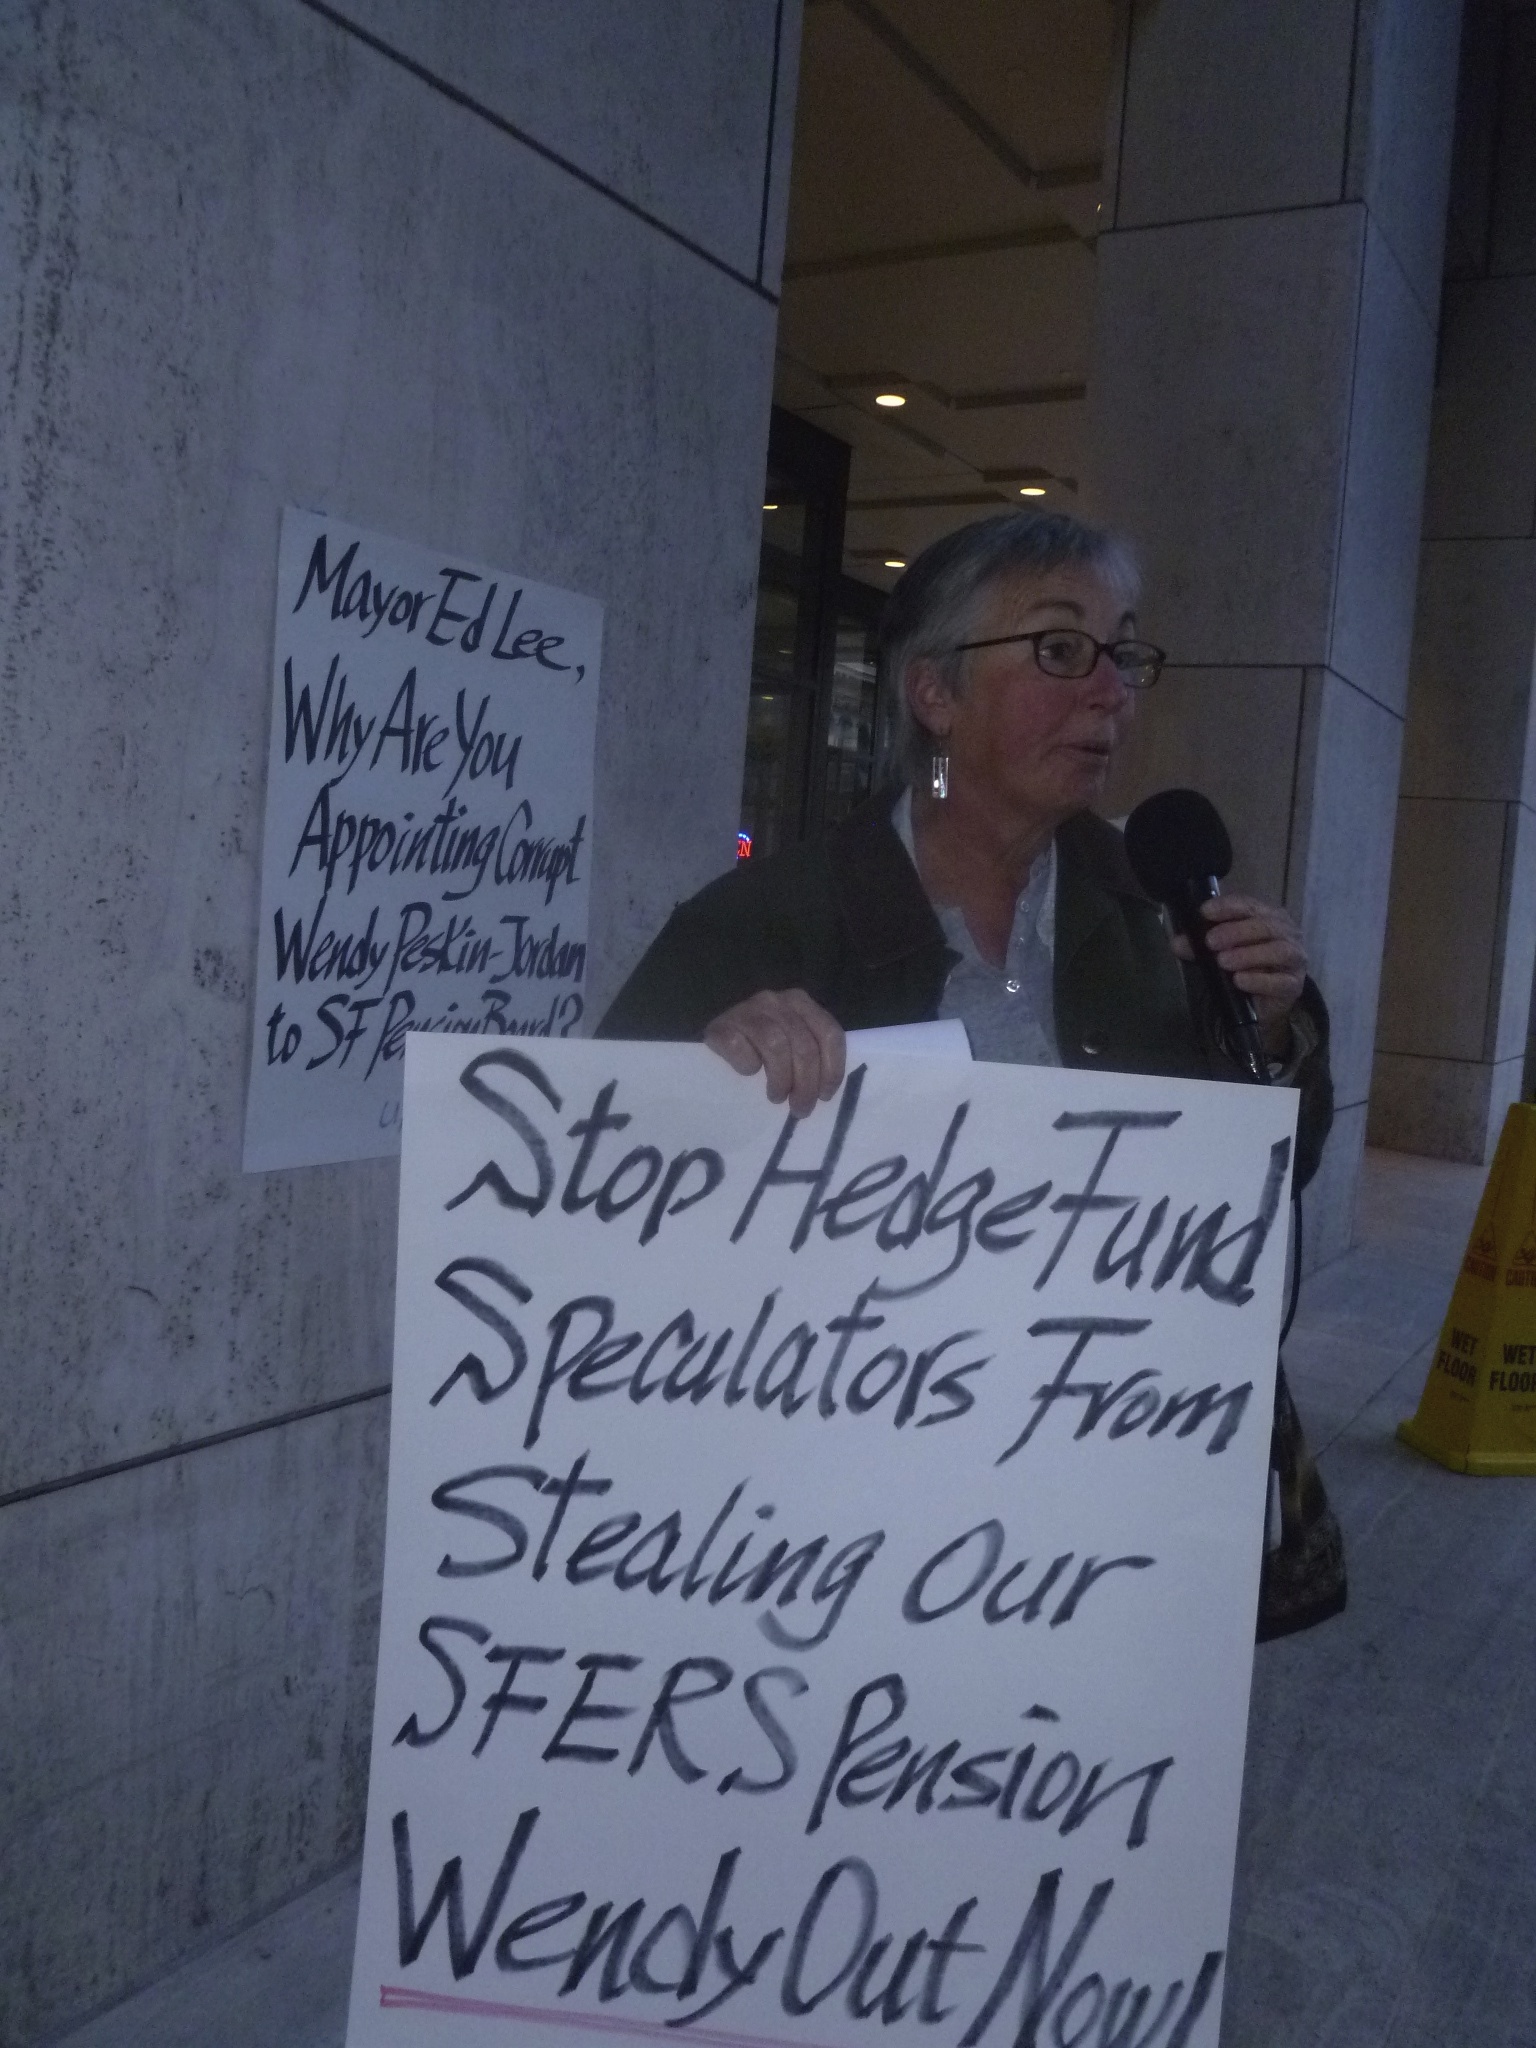 Mayor Ed Lee,
Why Are You
Appointing Corrupt
Wendy Peskin-Jordan
to SF Pension Board?
Stop Hedge Fund
Speculators From
Stealing Our
SFERS Pension
Wendy Out Now!
EN
CAUTION
WET
FLOOR
WET
FLOOR